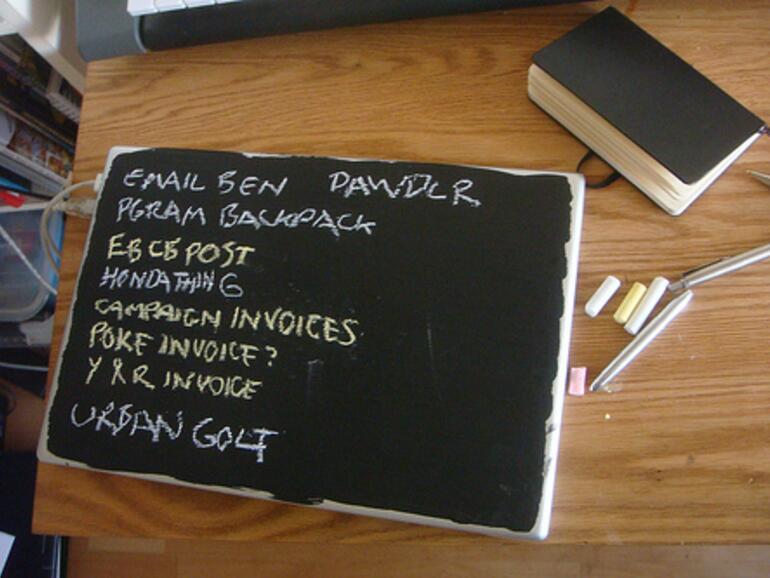 EMAIL BEN PAWDLR
PGRAM BACKPACK
EBCB POST
HONDA THING
CAMPAIGN INVOICES
POKE INVOICE?
Y & R INVOICE
URBAN GOLF